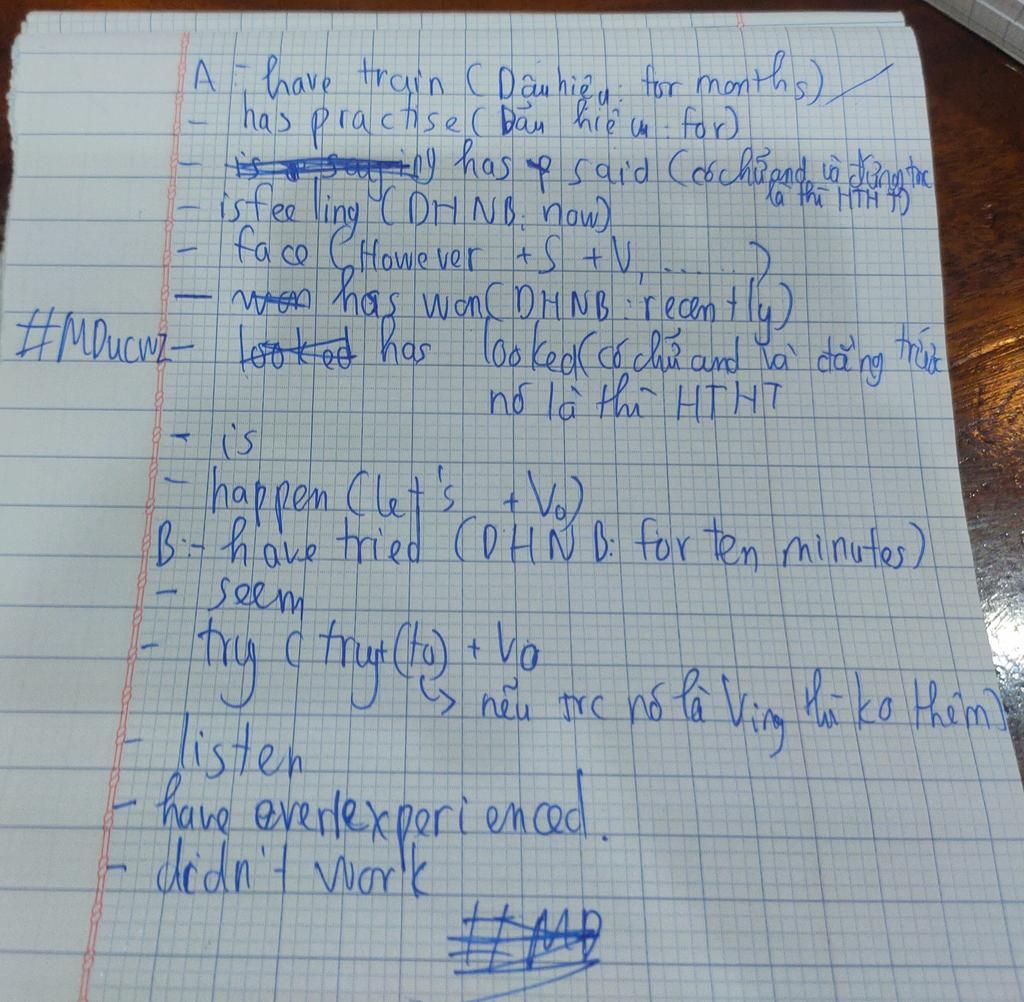 A - have train (Dấu hiệu: for months)
- has practise (Dấu hiệu: for)
- has said (có chữ and và đứng trc
là thì HTHT)
- is feeling (DHNB: now)
- face (However +S +V, ......)
- won has won (DHNB: recently)
#MDucwz - looked has looked (có chữ and và đằng trước
nó là thì HTHT
- is
- happen (let's + Vo)
B: - have tried (DHNB: for ten minutes)
- seem
- try ( try+(to) + Vo
↳ nếu trc nó là Ving thì ko thêm)
- listen
- have ever experienced.
- didn't work
#MD